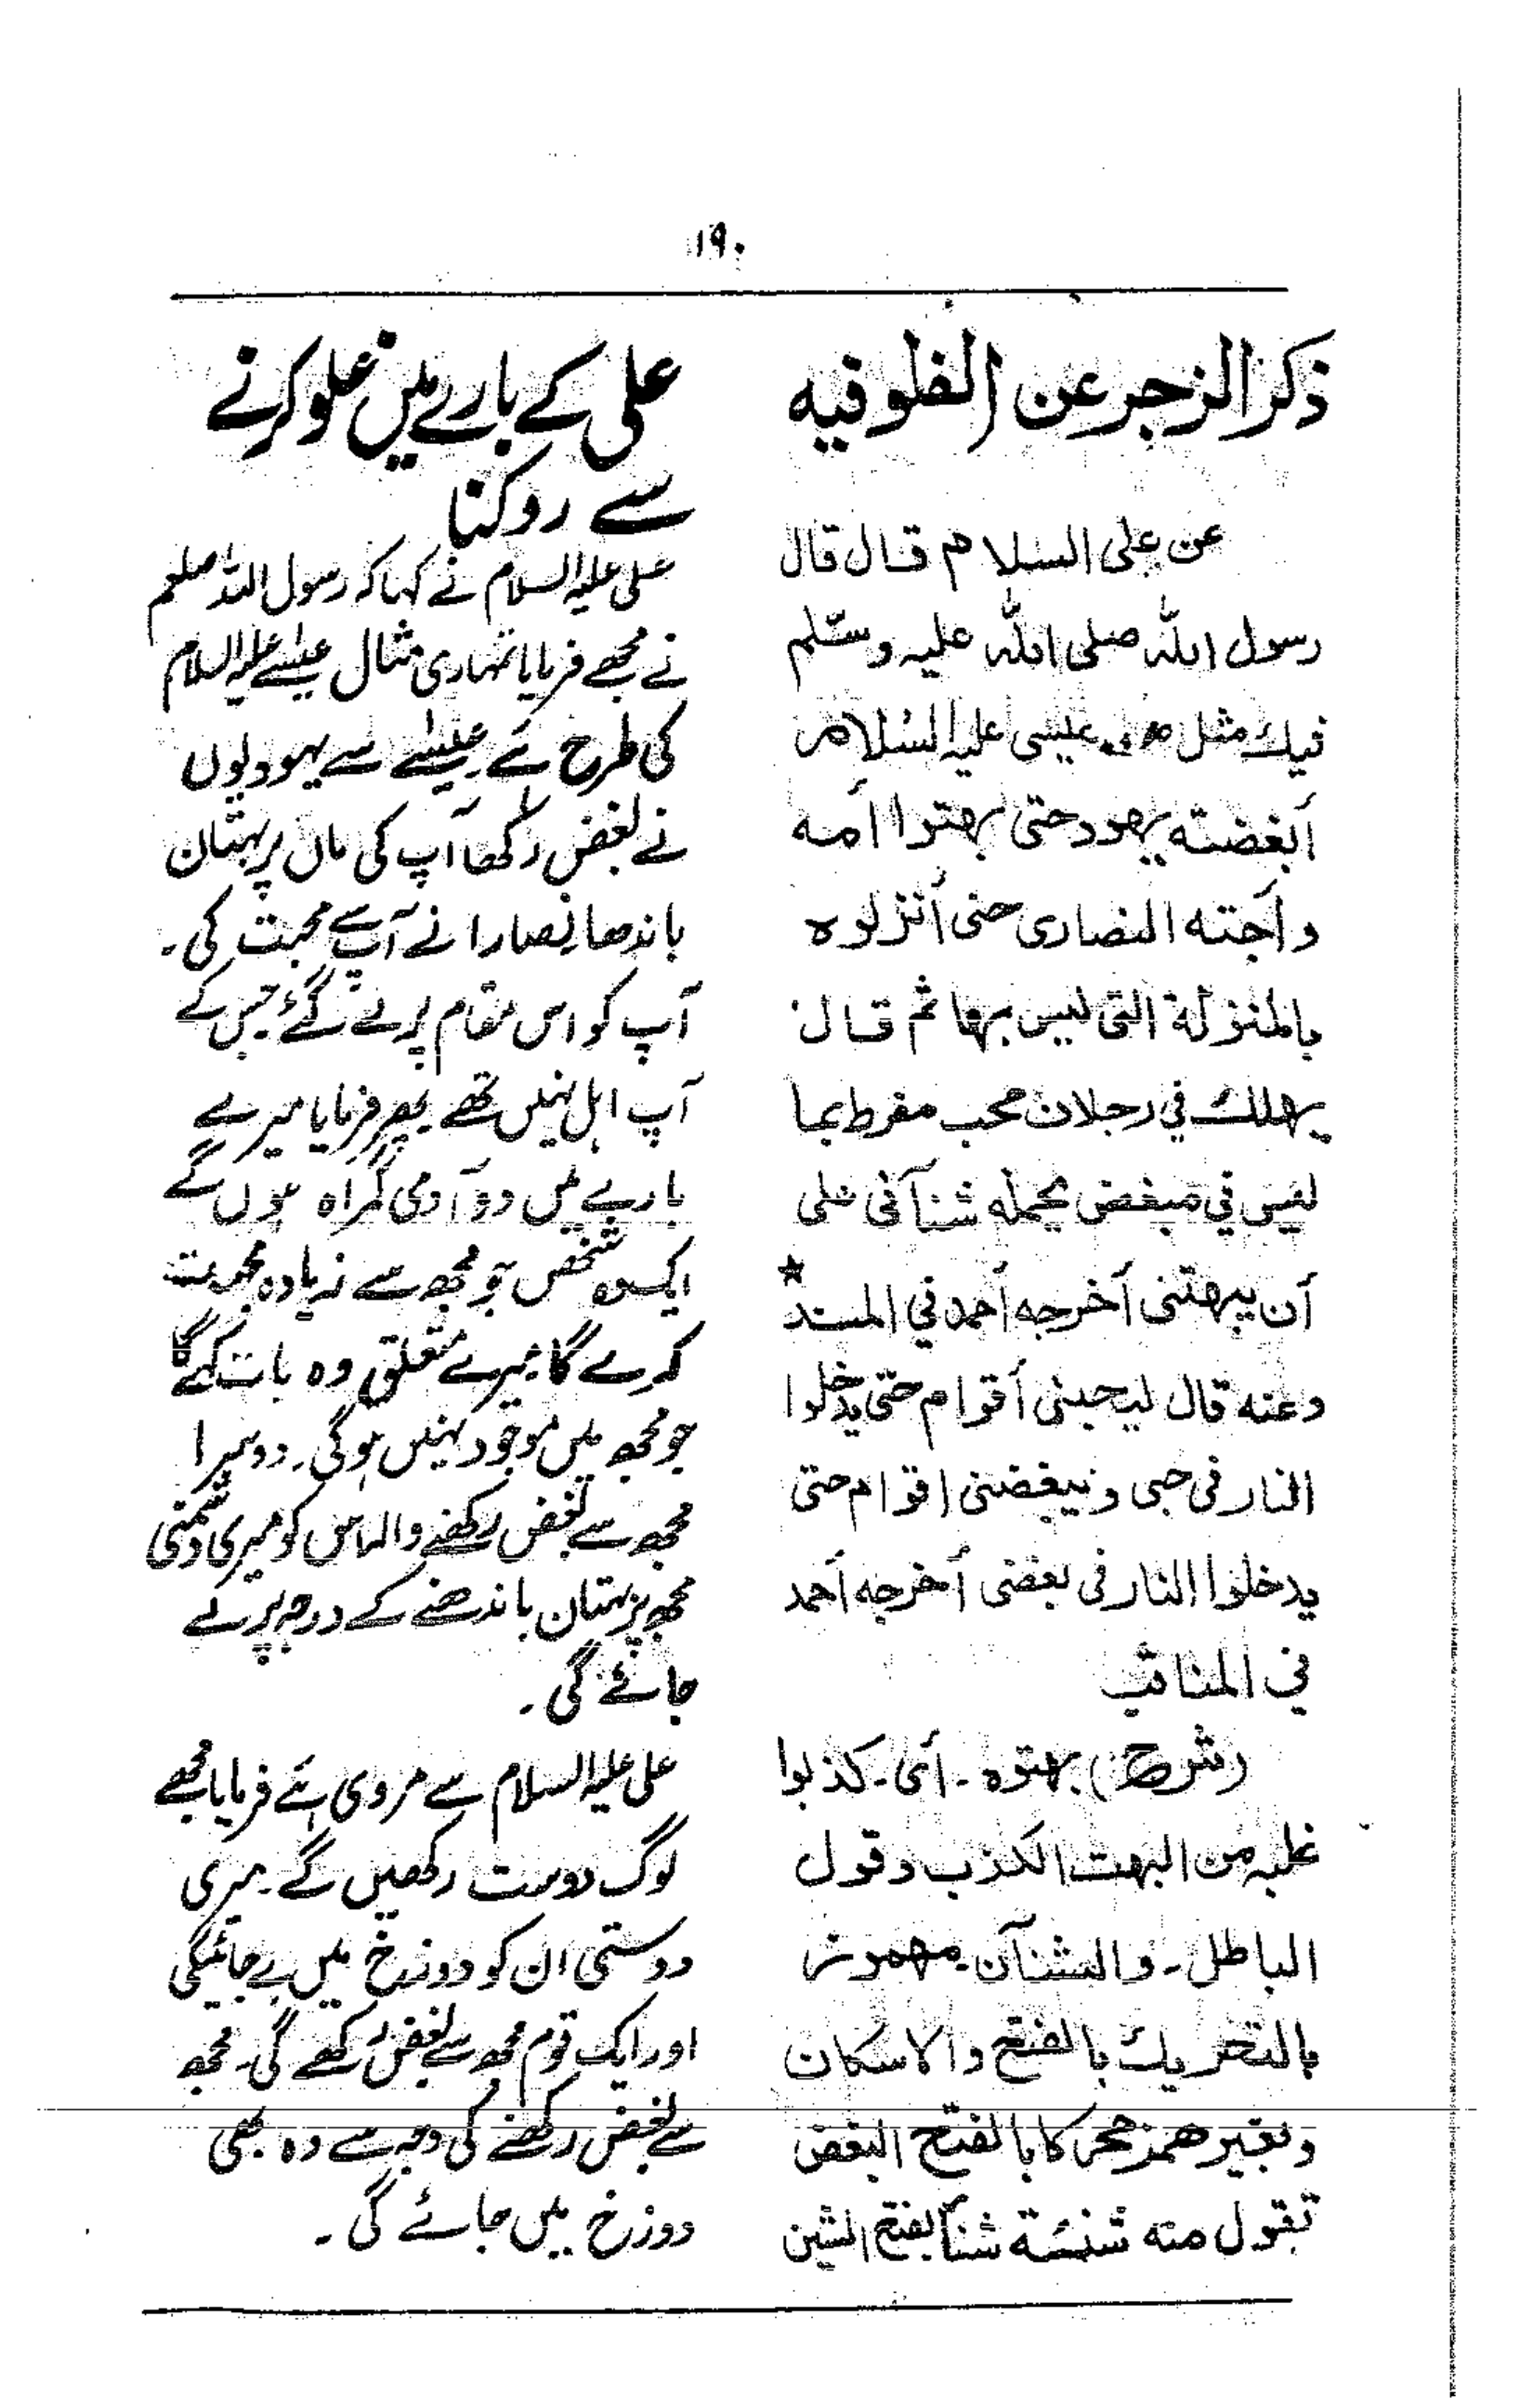 ۱۹۰
ذكر الزجر عن الغلو فيه
عن على السلام قال قال
رسول الله صلى الله عليه وسلّم
فيك مثل من عيسى عليه السلام
أبغضته يهود حتى بهتوا أمه
وأحبته النصارى حتى أنزلوه
بالمنزلة التى ليس بها ثم قال
يهلك في رجلان محب مفرط بما
ليس في مبغض يحمله شنآنى على
أن يبهتنى أخرجه أحمد في المسند*
وعنه قال ليحبنى أقوام حتى يدخلوا
النار فى حبى ويبغضنى اقوام حتى
يدخلوا النار فى بغضى أخرجه أحمد
في المناقب
(شرح) بهتوه - أى - كذبوا
عليه من البهت الكذب وقول
الباطل - والشنآن - مهموز
بالتحريك بالفتح والاسكان
وبغير همز محركا بالفتح البغض
تقول منه شنئتة شنآ بفتح الشين
علی کے بارے میں غلو کرنے
سے روکنا
علی علیہ السلام نے کہا کہ رسول اللہ صلعم
نے مجھے فرمایا تمہاری مثال عیسٰے علیہ السلام
کی طرح ہے۔ عیسٰے سے یہودیوں
نے بغض رکھا آپ کی ماں پر بہتان
باندھا نصارا نے آپ سے محبت کی۔
آپ کو اس مقام پر لے گئے جس کے
آپ اہل نہیں تھے پھر فرمایا میرے
بارے میں دو آدمی گمراہ ہوں گے
ایک وہ شخص جو مجھ سے زیادہ محبت
کرے گا میرے متعلق وہ بات کہے گا
جو مجھ میں موجود نہیں ہو گی۔ دوسرا
مجھ سے بغض رکھنے والا اس کو میری دشمنی
مجھ پر بہتان باندھنے کے درجہ پر لے
جائے گی۔
علی علیہ السلام سے مروی ہے فرمایا مجھے
لوگ دوست رکھیں گے۔ میری
دوستی ان کو دوزخ میں لے جائیگی
اور ایک قوم مجھ سے بغض رکھے گی۔ مجھ
سے بغض رکھنے کی وجہ سے وہ بھی
دوزخ میں جائے گی۔